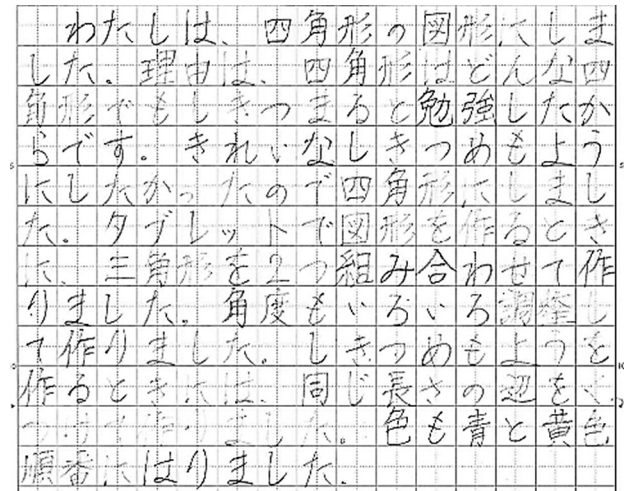 わたしは、四角形の図形にしま
した。理由は、四角形はどんな四
角形でもしきつまると勉強したか
らです。きれいなしきつめもよう
にしたかったので四角形にしまし
た。タブレットで図形を作るとき
に、三角形を2つ組み合わせて作
りました。角度もいろいろ調整し
て作りました。しきつめもようを
作るときには、同じ長さの辺をく
っつけて作りました。色も青と黄色
順番にはりました。